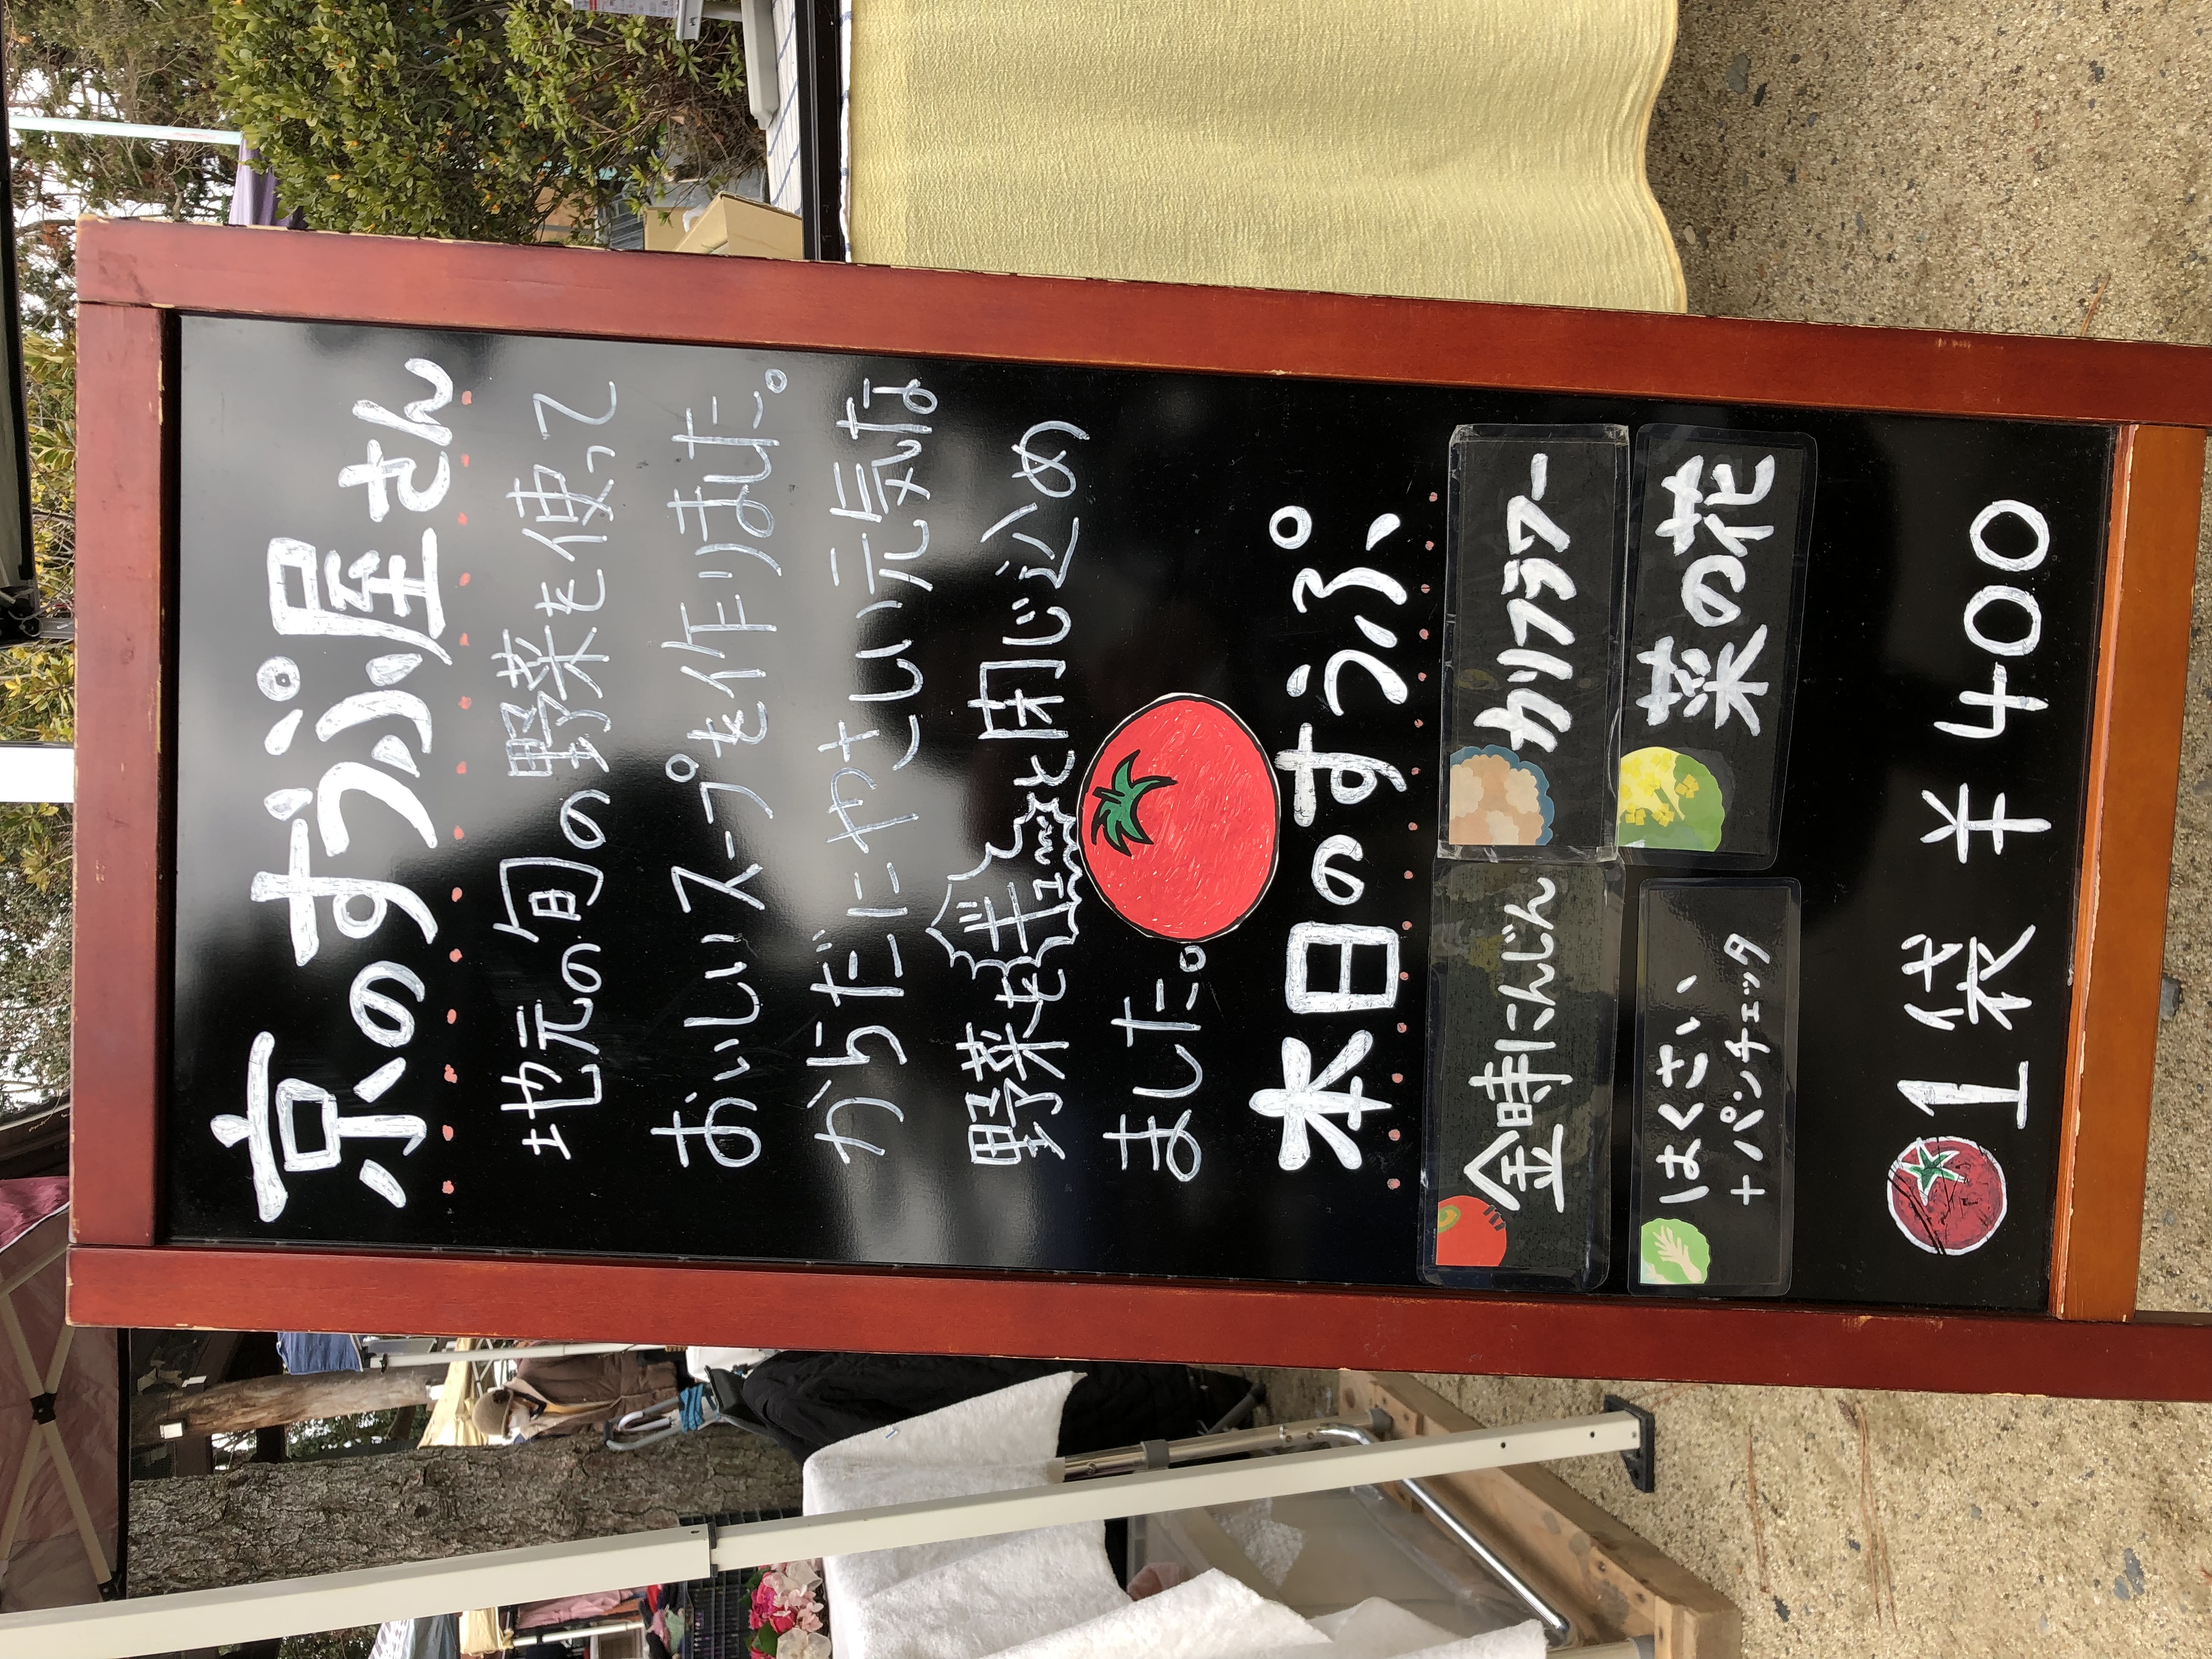 京のすうぷ屋さん
地元の旬の野菜を使って
おいしいスープを作りました。
からだにやさしい元気な
野菜をギュッと閉じ込め
ました。
本日のすうぷ
金時にんじん
カリフラワー
はくさい、
+パンチェッタ
菜の花
1袋 ¥400